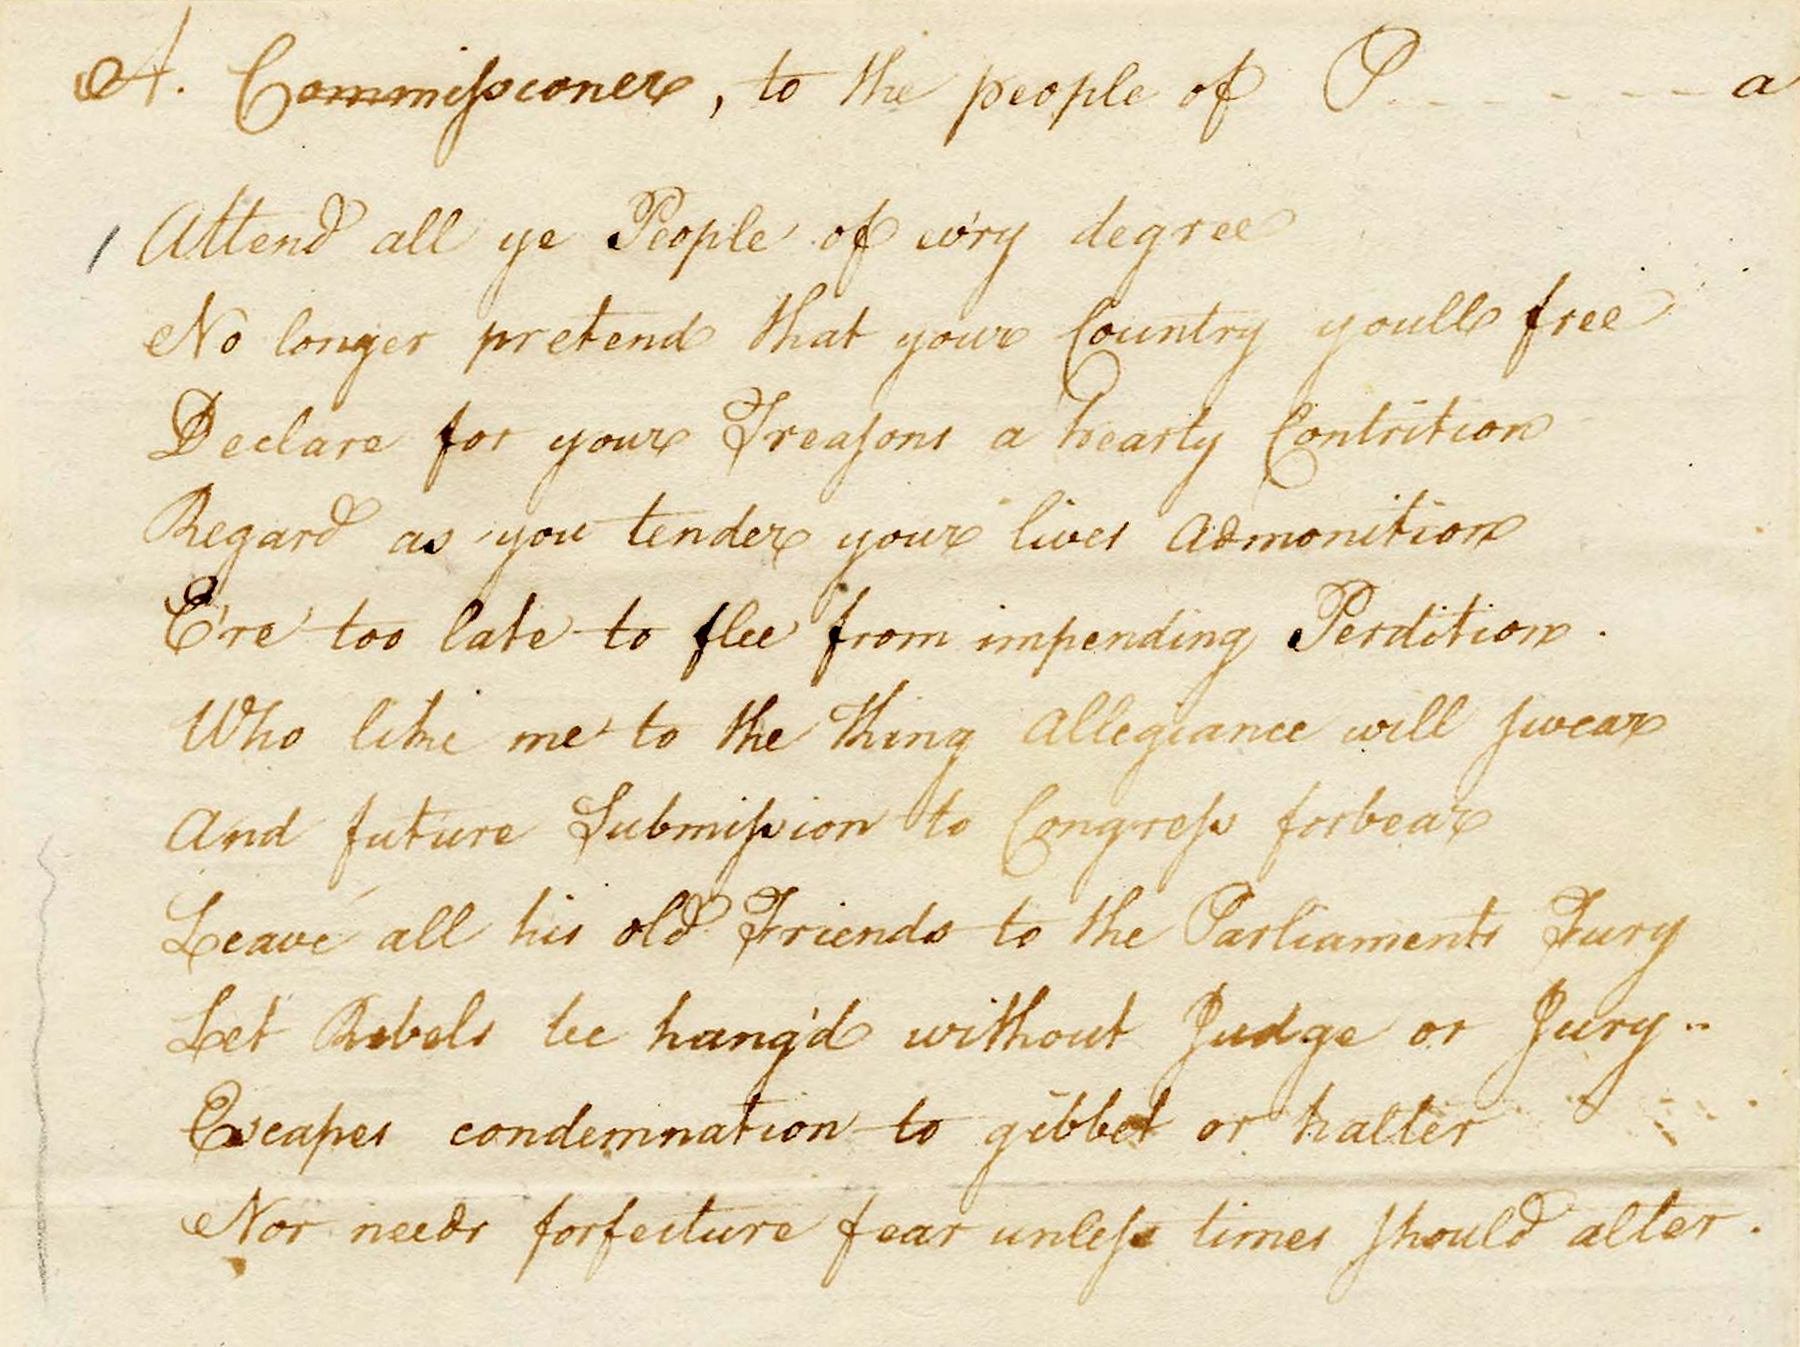 A. Commissioner, to the people of P - - - - - - - a
Attend all ye People of ev'ry degree
No longer pretend that your Country youll free
Declare for your Treasons a hearty Contrition
Regard as you tender your lives admonition
E're too late to flee from impending Perdition.
Who like me to the thing allegiance will swear
And future Submission to Congress forbear
Leave all his old Friends to the Parliaments Fury
Let Rebels be hang'd without Judge or Jury..
Escapes condemnation to gibbet or halter
Nor needs forfeiture fear unless times should alter.